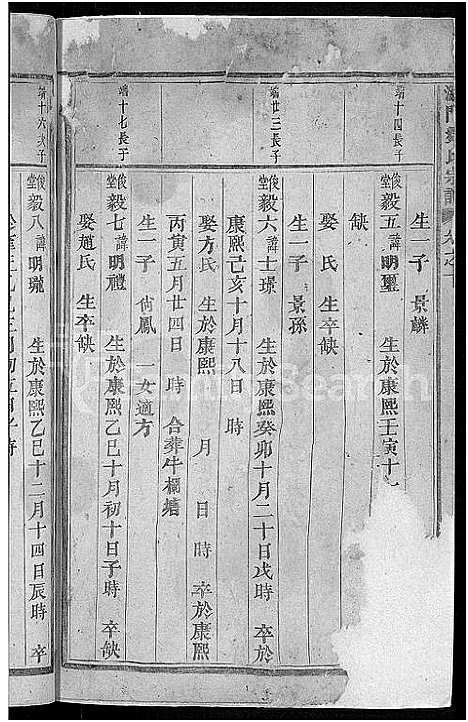 端十四長子
生一子 景麟
俊堂 毅五 諱明璽 生於康熙壬寅十
缺
娶 氏 生卒缺
生一子 景孫
端廿三長子
俊堂 毅六 諱士璟 生於康熙癸卯十月二十日戌時 卒於
康熙己亥十月十八日 時
娶方氏 生於康熙 月 日 時 卒於康熙
丙寅五月廿四日 時 合葬牛欄塘
生一子 尙鳳 一女適方
端十七長子
俊堂 毅七 諱明禮 生於康熙乙巳十月初十日子時 卒缺
娶趙氏 生卒缺
端十六次子
俊堂 毅八 諱明瓏 生於康熙乙巳十二月十四日辰時 卒